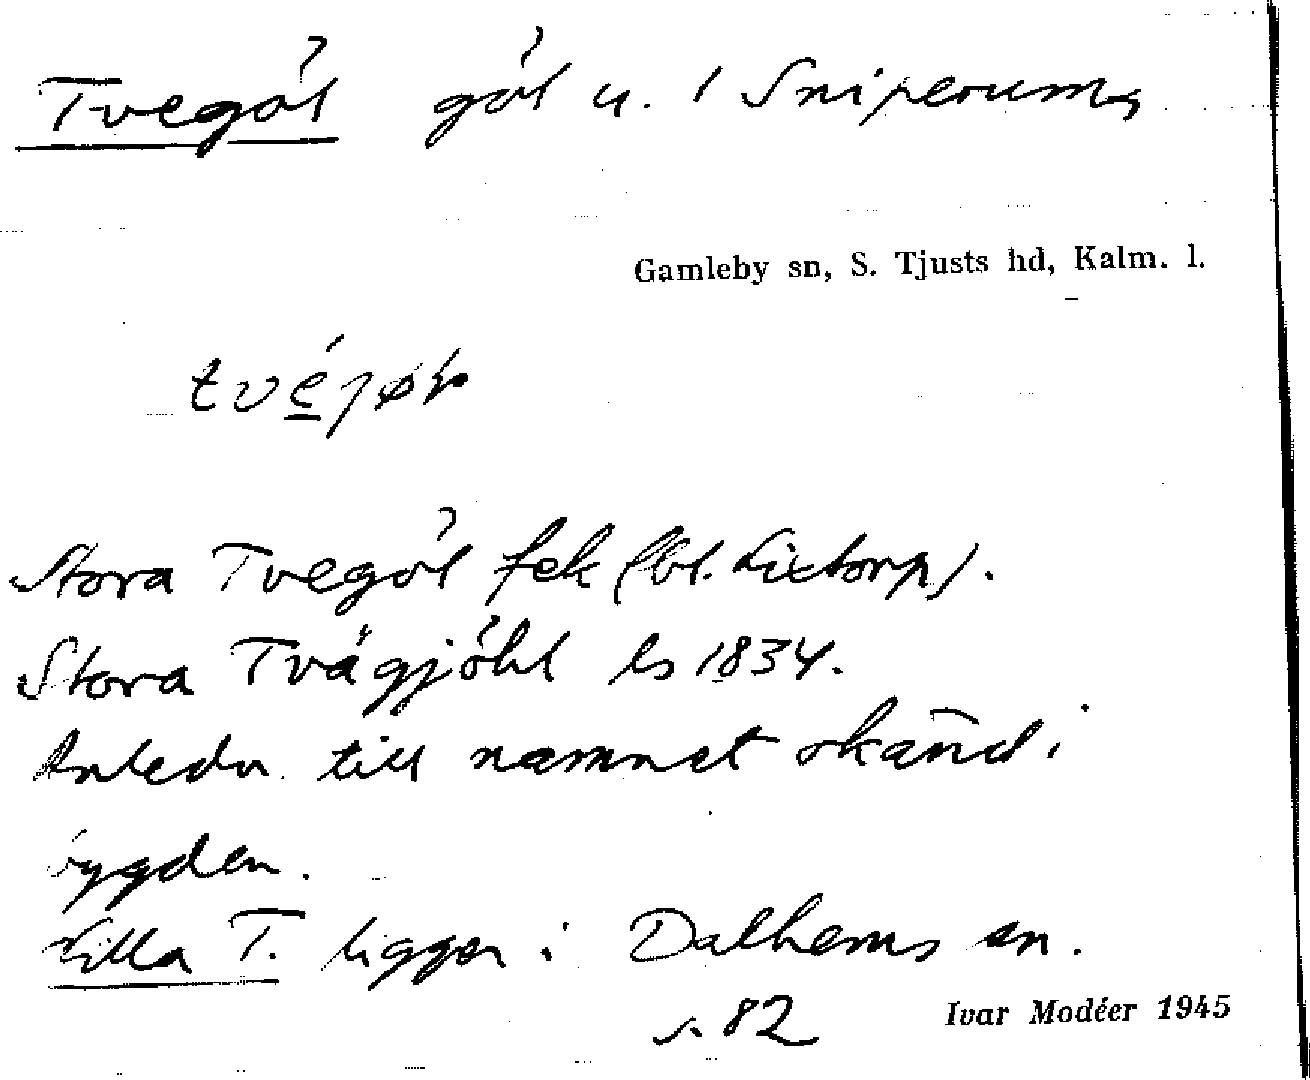 Tvegöl göl u. / Sniperum,
Gamleby sn, S. Tjusts hd, Kalm. l.
Stora Tvegöl fek (bl. Lixtorp).
Stora Tvägjöhl ls 1834.
Anledn. till namnet okänd i
bygden.
Lilla T. ligger i Dalhems sn.
s. 82
Ivar Modéer 1945